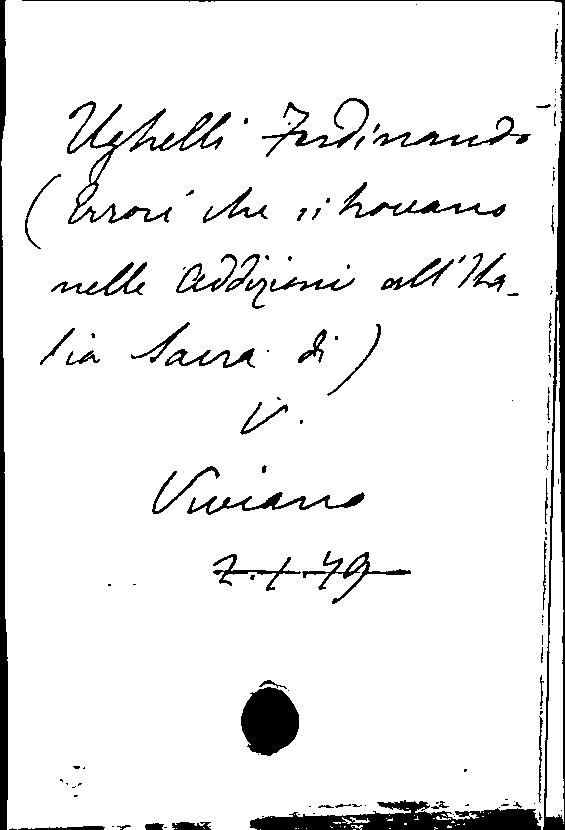 Ughelli Ferdinando
(Errori che si trovano
nelle Addizioni all'Ita-
lia Sacra di)
V.
Viviano
Z.I.79